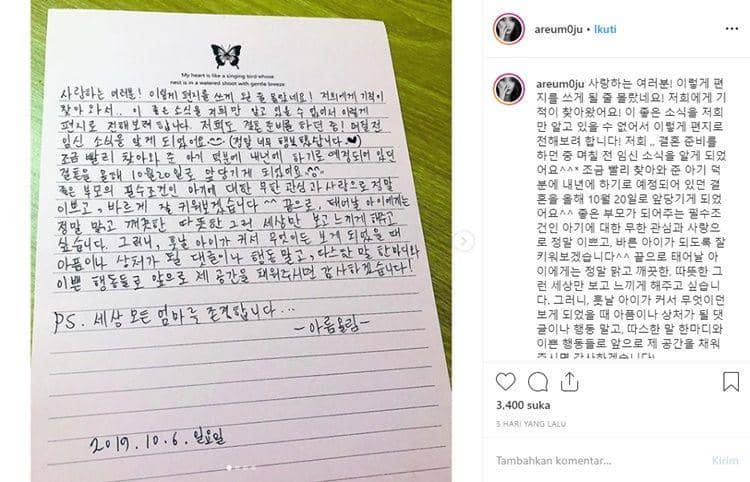 My heart is like a singing bird whose
nest is in a watered shoot with gentle breeze
사랑하는 여러분! 이렇게 편지를 쓰게 될 줄 몰랐네요! 저희에게 기적이
찾아와서.. 이 좋은 소식을 저희만 알고 있을 수 없어서 이렇게
편지로 전해보려 합니다. 저희도 결혼준비를 하던 중! 며칠전
임신 소식을 알게 되었어요 (정말 너무 행복했답니다.♥)
조금 빨리 찾아와 준 아기 덕분에 내년에 하기로 예정되어 있던
결혼을 올해 10월20일로 앞당기게 되었어요.^^
좋은 부모의 필수조건인 아기에 대한 무한 관심과 사랑으로 정말
이쁘고, 바르게 잘 키워보겠습니다 ^^ 끝으로, 태어날 아이에게는
정말 맑고 깨끗한 따뜻한 그런 세상만 보고 느끼게 해주고
싶습니다. 그러니, 훗날 아이가 커서 무엇이든 보게 되었을 때
아픔이나 상처가 될 댓글이나 행동 말고, 따스한 말 한마디와
이쁜 행동들로 앞으로 제 공간을 채워주시면 감사하겠습니다!
PS. 세상 모든 엄마를 존경합니다...
-아름올림-
2019.10.6. 일요일
areum0ju • Ikuti
areum0ju 사랑하는 여러분! 이렇게 편
지를 쓰게 될 줄 몰랐네요! 저희에게 기
적이 찾아왔어요! 이 좋은 소식을 저희
만 알고 있을 수 없어서 이렇게 편지로
전해보려 합니다! 저희 .. 결혼 준비를
하던 중 며칠 전 임신 소식을 알게 되었
어요^^* 조금 빨리 찾아와 준 아기 덕
분에 내년에 하기로 예정되어 있던 결
혼을 올해 10월 20일로 앞당기게 되었
어요^^ 좋은 부모가 되어주는 필수조
건인 아기에 대한 무한 관심과 사랑으
로 정말 이쁘고, 바른 아이가 되도록 잘
키워보겠습니다^^ 끝으로 태어날 아
이에게는 정말 맑고 깨끗한, 따뜻한 그
런 세상만 보고 느끼게 해주고 싶습니
다. 그러니, 훗날 아이가 커서 무엇이던
보게 되었을 때 아픔이나 상처가 될 댓
글이나 행동 말고, 따스한 말 한마디와
이쁜 행동들로 앞으로 제 공간을 채워
주시면 감사하겠습니다!
3.400 suka
3 HARI YANG LALU
Tambahkan komentar...
Kirim